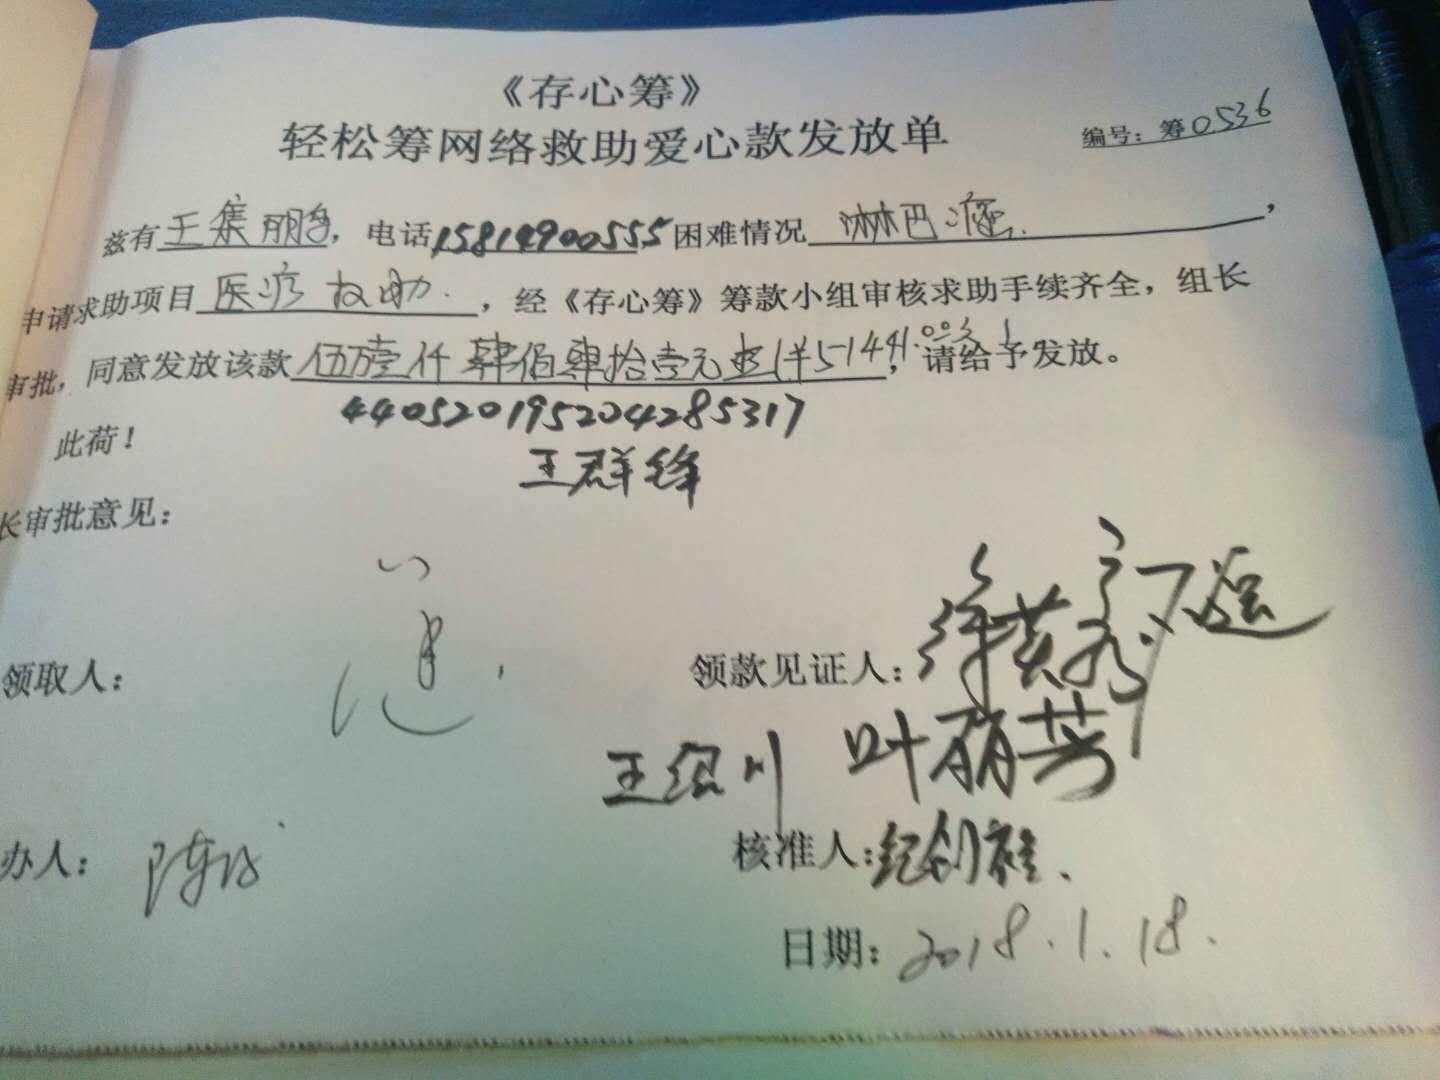 《存心筹》
轻松筹网络救助爱心款发放单
编号：筹0536
兹有王集鹏，电话15814900555困难情况淋巴瘤，
申请求助项目医疗救助．，经《存心筹》筹款小组审核求助手续齐全，组长
审批，同意发放该款伍万壹仟肆佰肆拾壹元 51441.00，请给予发放。
440520195204285317
此荷！
王群锋
长审批意见：
领取人：
领款见证人：
王绍川 叶丽芳
办人：
核准人：纪创雄．
日期：2018.1.18.